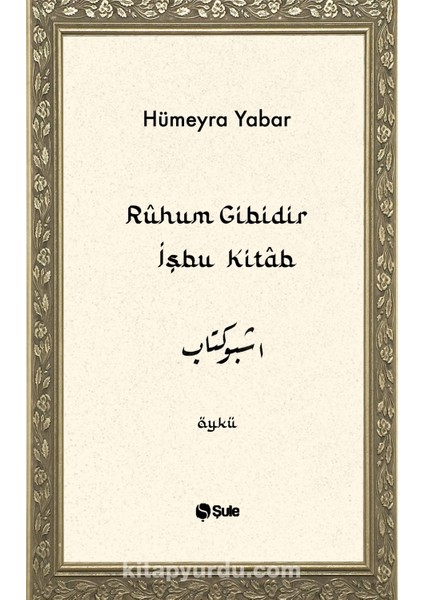 Hümeyra Yabar
Rûhum Gibidir
İşbu Kitâb
اشبو كتاب
öykü
Şule
kitapyurdu.com